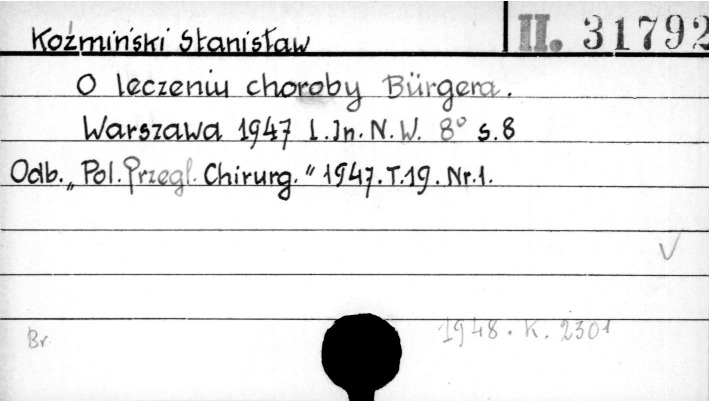 Koźmiński Stanisław
II. 31792
O leczeniu choroby Bürgera.
Warszawa 1947 I. In. N. W. 8° s. 8
Odb. „Pol. Przegl. Chirurg." 1947. T. 19. Nr. 1.
Br.
1948. K. 2301